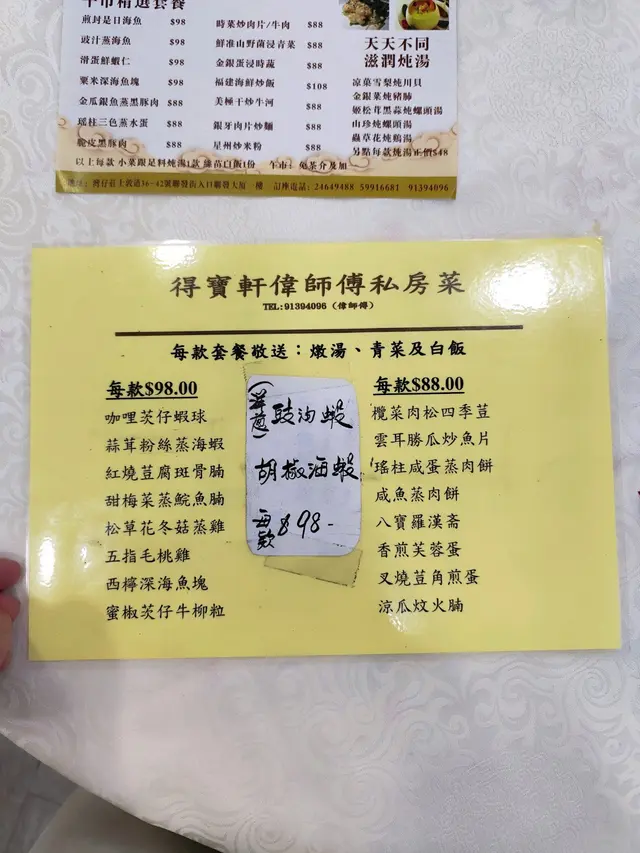 午市精選套餐
煎封是日海魚 $98
豉汁蒸海魚 $98
滑蛋鮮蝦仁 $98
粟米深海魚塊 $98
金瓜銀魚蒸黑豚肉 $88
瑤柱三色蒸水蛋 $88
脆皮黑豚肉 $88
時菜炒肉片/牛肉 $88
鮮准山野菌浸青菜 $88
金銀蛋浸時蔬 $88
福建海鮮炒飯 $108
美極干炒牛河 $88
銀牙肉片炒麵 $88
星州炒米粉 $88
天天不同
滋潤炖湯
凉菓雪梨炖川貝
金銀菜炖豬肺
姬松茸黑蒜炖螺頭湯
山珍炖螺頭湯
蟲草花炖鷄湯
另點每款炖湯正價$48
以上每款 小菜跟足料炖湯1款 絲苗白飯1份 午市：免茶介及加
地址：灣仔莊士敦道36-42號聯發街入口聯發大厦一樓 訂座電話：24649488 59916681 91394096
得寶軒偉師傅私房菜
TEL:91394096（偉師傅）
每款套餐敬送：燉湯、青菜及白飯
每款$98.00
咖哩茨仔蝦球
蒜茸粉絲蒸海蝦
紅燒荳腐斑骨腩
甜梅菜蒸鯇魚腩
松草花冬菇蒸雞
五指毛桃雞
西檸深海魚塊
蜜椒茨仔牛柳粒
豉油蝦
胡椒海蝦
每款 $98-
每款$88.00
欖菜肉松四季荳
雲耳勝瓜炒魚片
瑤柱咸蛋蒸肉餅
咸魚蒸肉餅
八寶羅漢斋
香煎芙蓉蛋
叉燒荳角煎蛋
涼瓜炆火腩